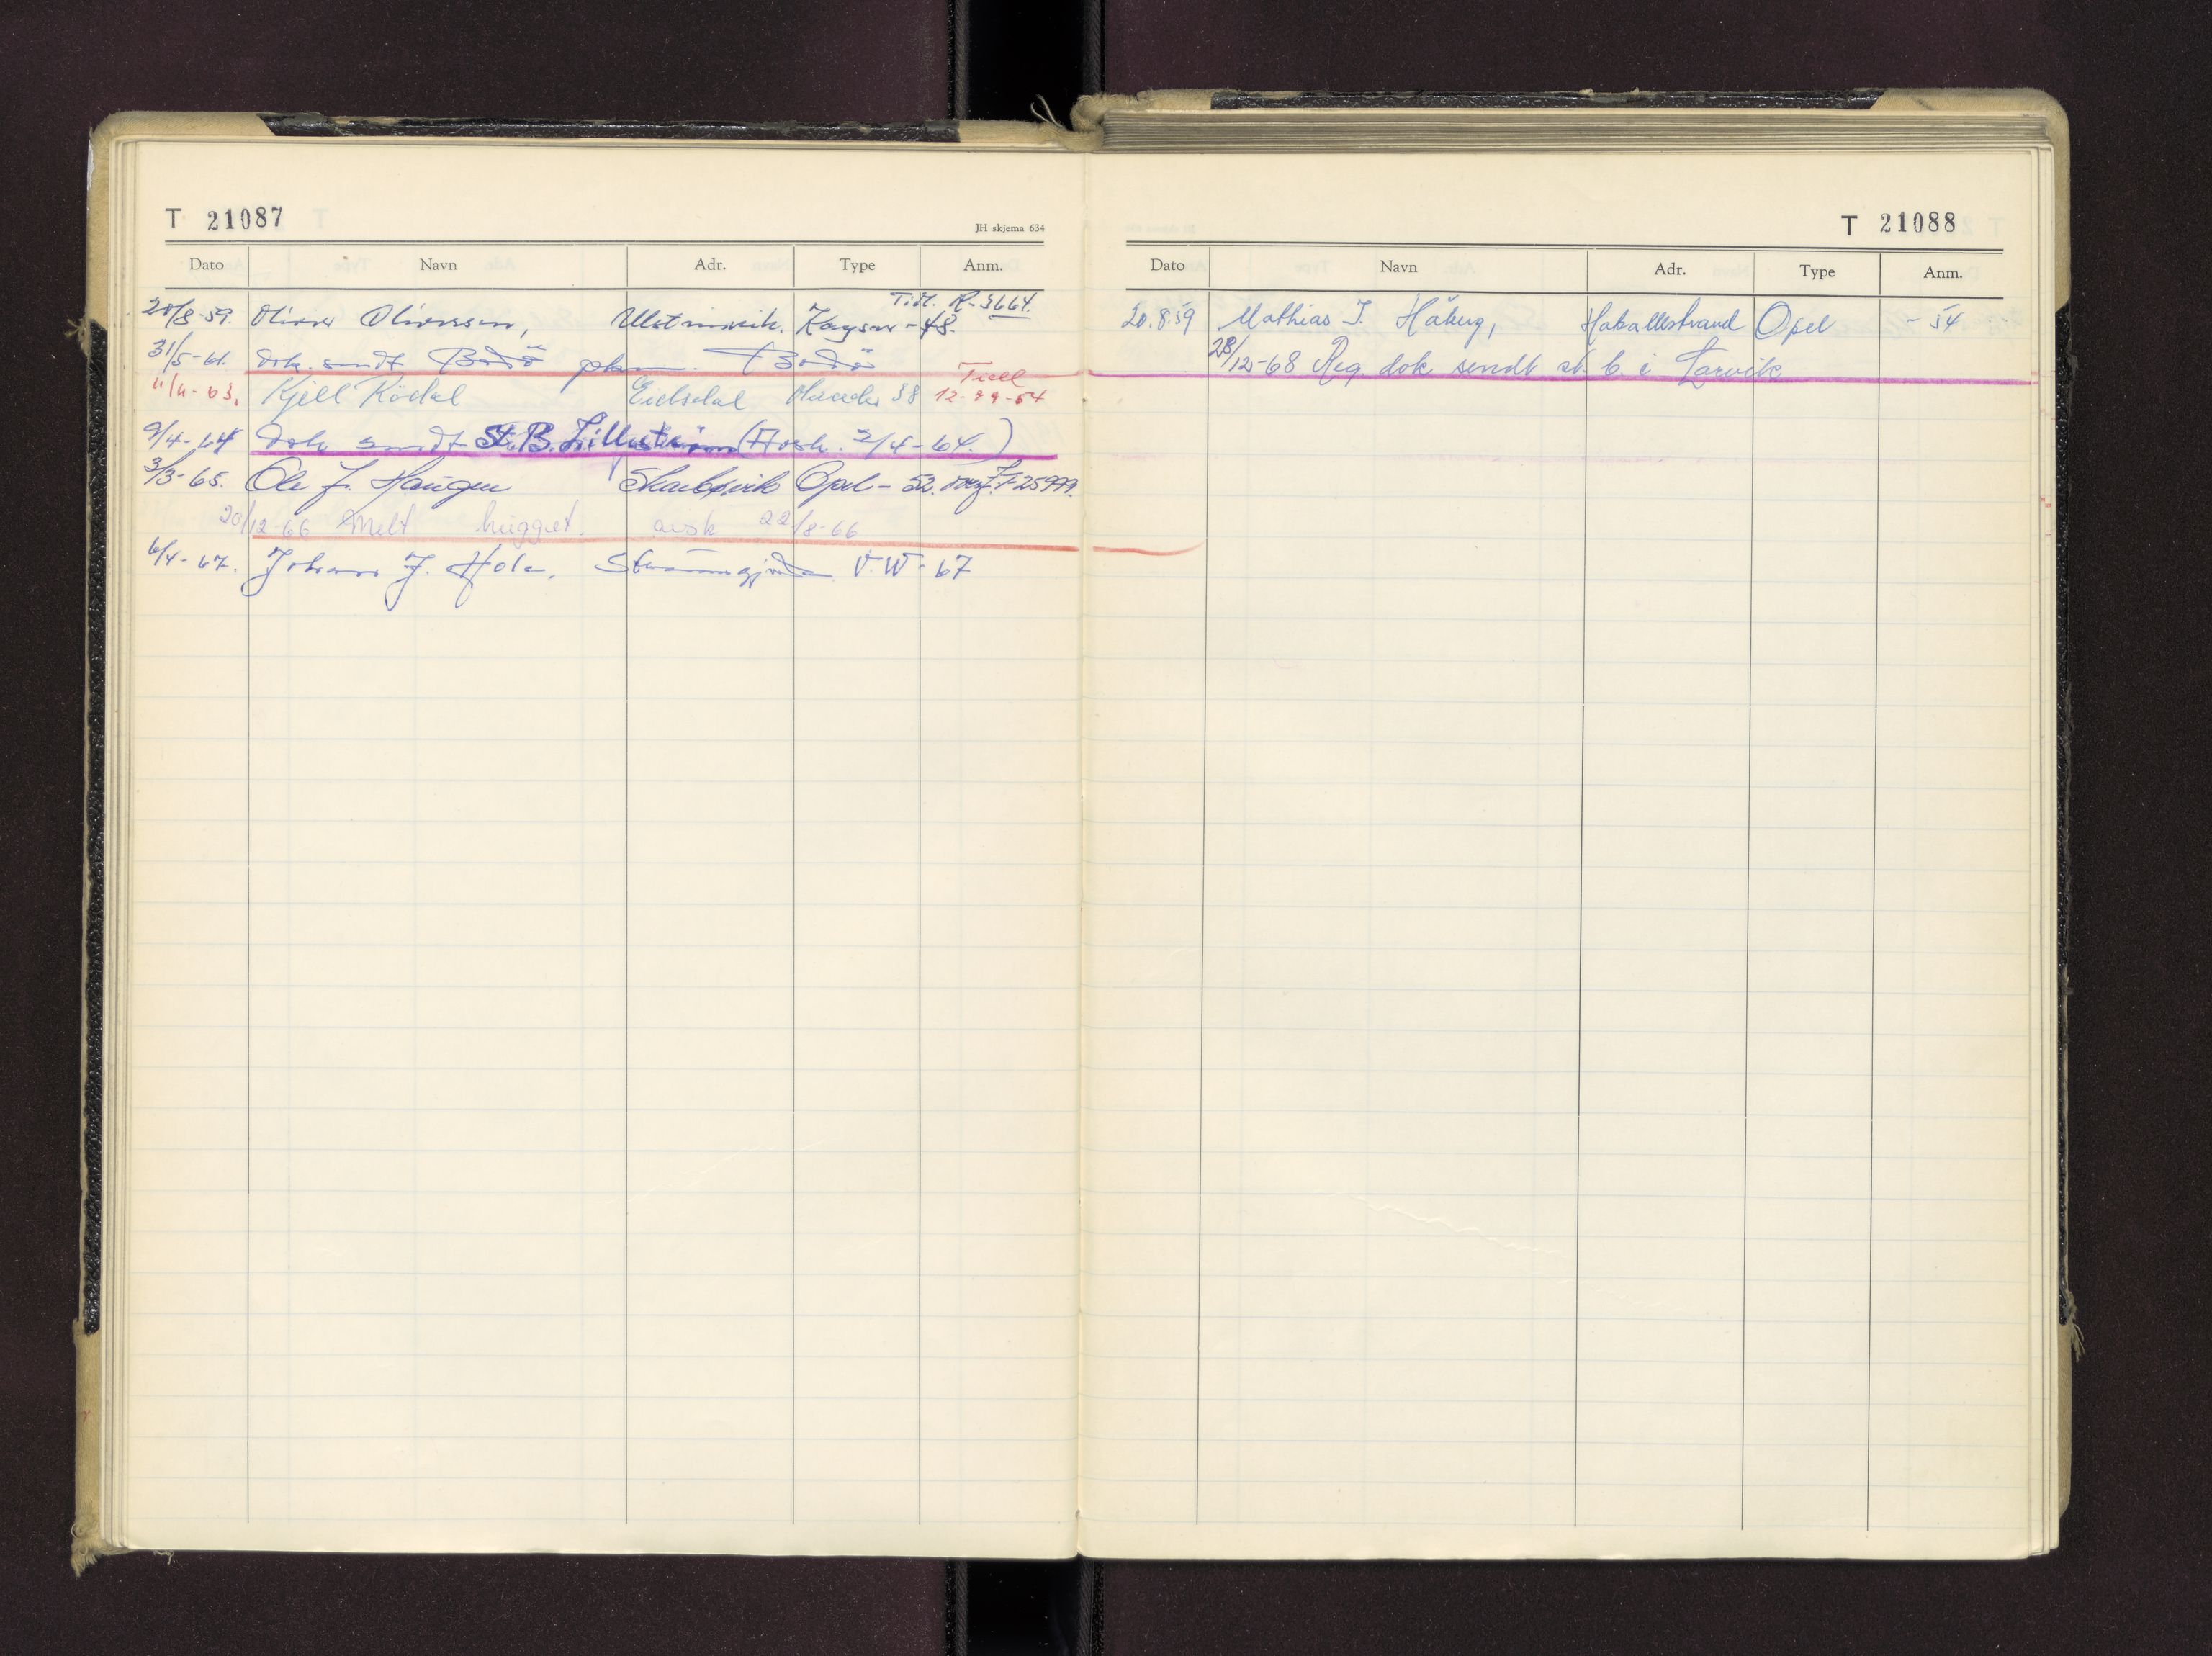 T 21087
JH skjema 634
Dato Navn Adr. Type Anm.
Tidl. R-3664.
20/8-59. Oliver Oliversen, Ulsteinvik. Kayser -48.
31/5-61. dok. sendt Bodö pkm. Bodö
Tidl
4/4-63. Kjell Rödal Eidsdal 38 12-99-54
9/4-64 dok sendt St. B. Lilleström (Avsk. 2/4-64.)
3/3-65. Ole J. Haugen Opel - 52.
20/12-66 Melt hugget. avsk 22/8-66
6/4-67. Johan J. Hole, V.W - 67
T 21088
Dato Navn Adr. Type Anm.
20.8.59 Mathias J. Håberg, Hakallestrand Opel - 54
28/12-68 Reg. dok sendt st. b. i Larvik